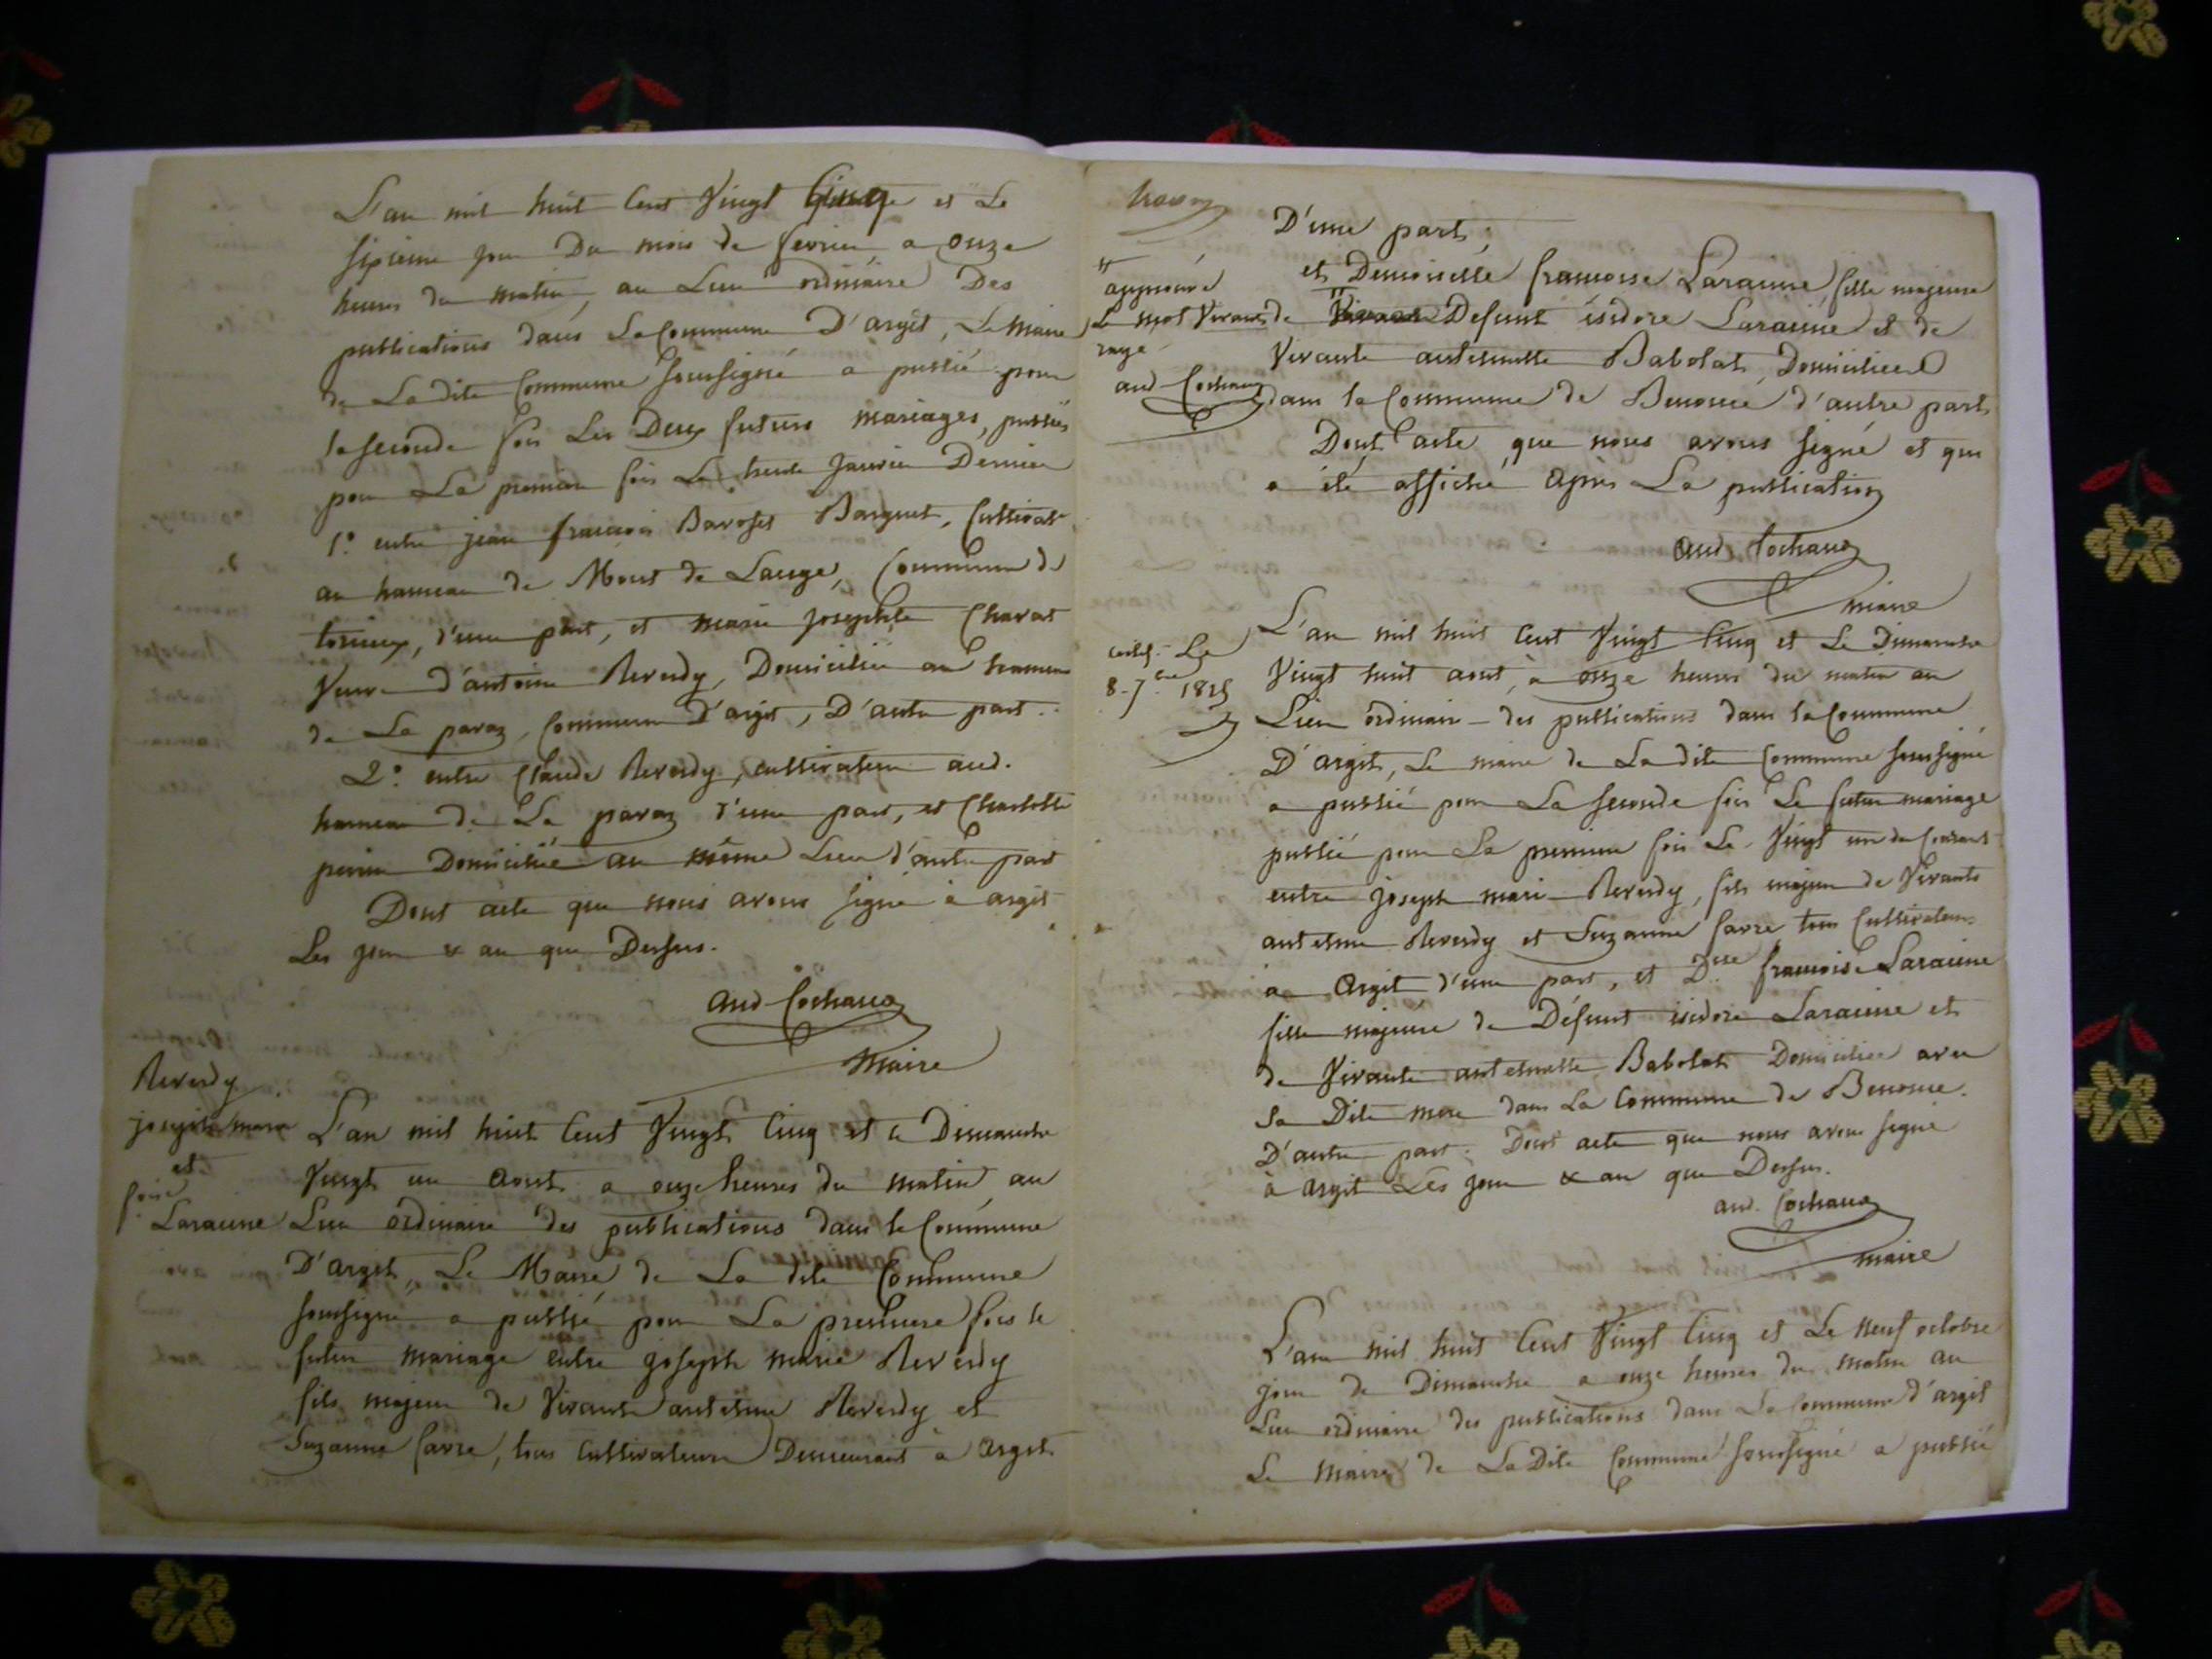 L'an mil huit Cent Vingt Cinq et Le
sixieme jour Du mois de fevrier a onze
heures du matin, au Lieu ordinaire Des
publications dans La Commune D'argit, Le Maire
de La dite Commune Soussigné a publié pour
la seconde fois Les Deux futurs mariages, publiés
pour La premiere fois Le trente Janvier Dernier
1.° entre jean francois Barquet, Cultivatr
au hameau de Mont de Lange, Commune de
d'une part, et marie josephte Charvat
Veuve d'antoine Reverdy, Domiciliée au hameau
de La paraz, Commune D'argit, D'autre part.
2.° entre Claude Reverdy, cultivateur aud.
hameau de La paraz d'une part, et Charlotte
perrin Domiciliée au même Lieu d'autre part
Dont acte que nous avons signé à argit
Les jour & an que Dessus.
and Cochaud
Maire
Reverdy
joseph marie
et
foise
Laraune
L'an mil huit Cent Vingt Cinq et le Dimanche
Vingt un Aout a onze heures du matin au
Lieu ordinaire des publications dans la Commune
D'argit, Le Maire de La dite Commune
Soussigné a publié pour La premiere fois le
futur mariage entre joseph marie Reverdy
fils majeur de Vivants antelme Reverdy et
Suzanne favre, tous cultivateurs Demeurant à argit
D'une part;
et Demoiselle francoise Laraune, fille majeure
de Vivants Defunt isidore Laraune et de
Vivante antelmette Babolat, Domiciliée
dans la Commune de Benonce d'autre part
Dont acte que nous avons signé et qui
a été affiché après La publication
"
approuvé
Le mot Vivants
rayé
and Cochaud
and Cochaud
maire
Le
8 - 7.bre 1825
L'an mil huit Cent Vingt Cinq et Le Dimanche
Vingt huit aout, a onze heures du matin au
Lieu ordinaire des publications dans la Commune
D'argit, Le maire de La dite Commune soussigné
a publié pour La seconde fois Le futur mariage
publié pour La premiere fois Le Vingt un du Courant
entre joseph marie Reverdy, fils majeur de Vivants
antelme Reverdy et Suzanne favre tous Cultivateurs
a Argit d'une part, et D.lle francoise Laraune
fille majeure de Défunt isidore Laraune et
de Vivante antelmette Babolat Domiciliée avec
Sa Dite mere dans La Commune de Benonce.
D'autre part. Dont acte que nous avons signé
à Argit Les jour & an que Dessus.
and. Cochaud
maire
L'an mil huit Cent Vingt Cinq et Le neuf octobre
jour de Dimanche a onze heures du matin au
Lieu ordinaire des publications dans La Commune d'argit
Le Maire de La Dite Commune soussigné a publié